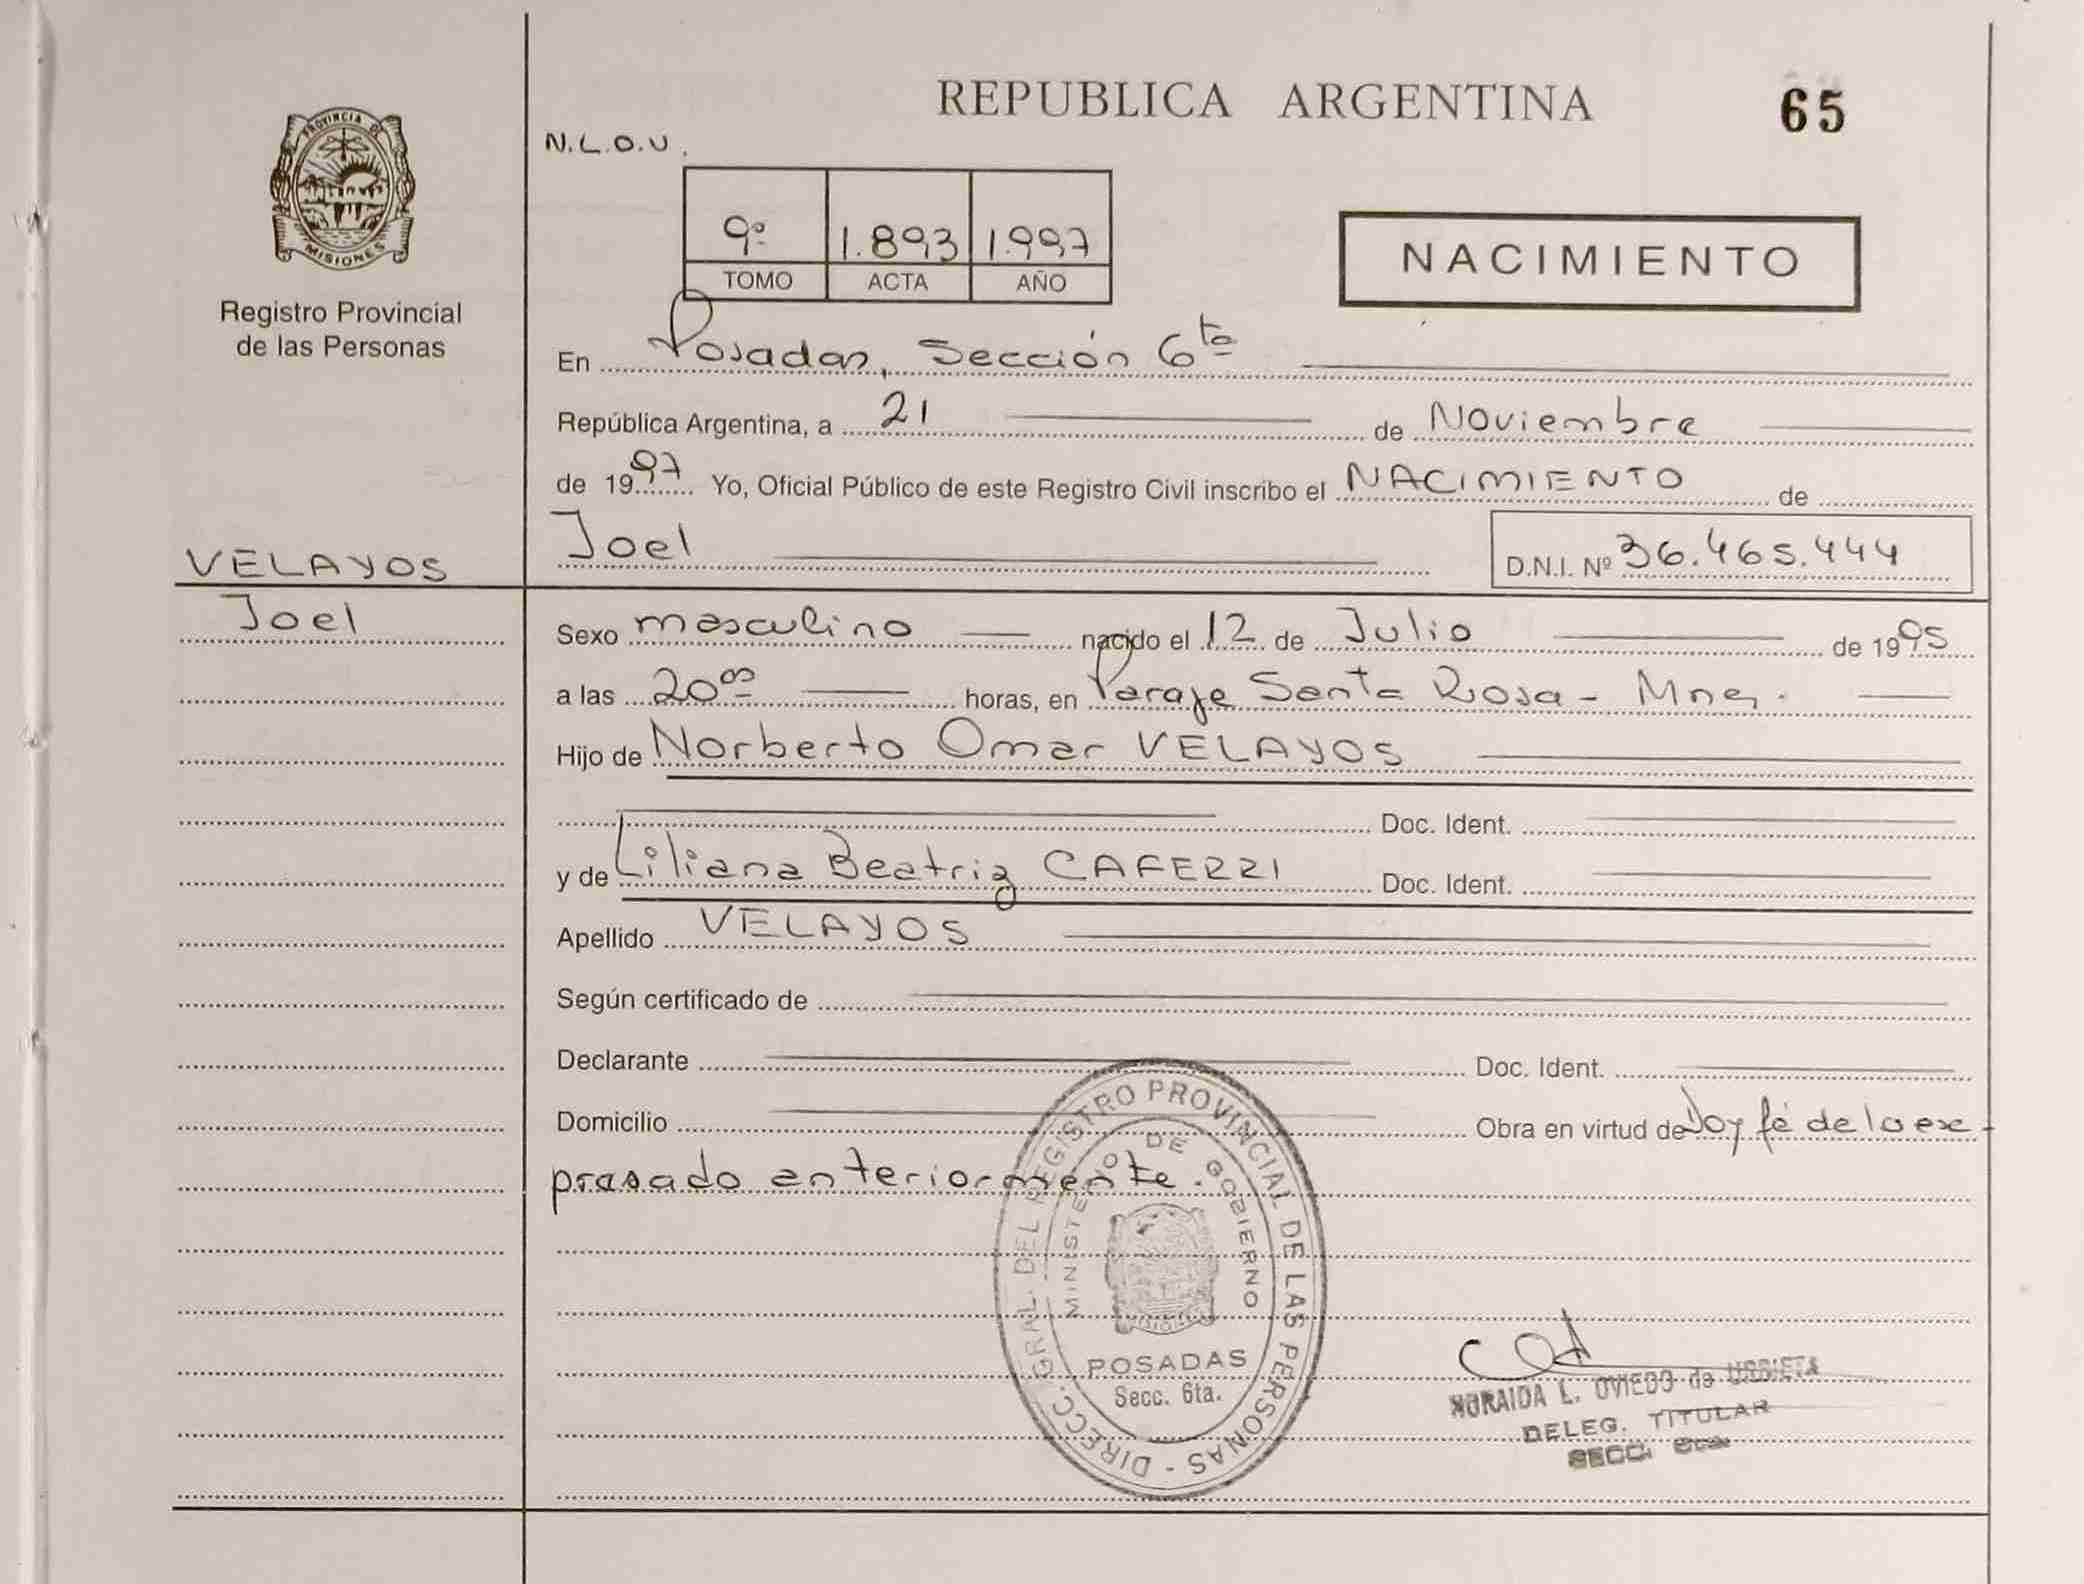 REPUBLICA ARGENTINA
65
PROVINCIA DE
MISIONES
Registro Provincial
de las Personas
N.L.O.U.
9º 1.893 1.997
TOMO ACTA AÑO
NACIMIENTO
En Posadas, Sección 6ta
República Argentina, a 21 de Noviembre
de 1997 Yo, Oficial Público de este Registro Civil inscribo el NACIMIENTO de
Joel D.N.I. Nº 36.465.444
VELAYOS
Joel
Sexo masculino nacido el 12 de Julio de 1995
a las 20ºº horas, en Paraje Santa Rosa - Mnes.
Hijo de Norberto Omar VELAYOS
Doc. Ident.
y de Liliana Beatriz CAFERRI Doc. Ident.
Apellido VELAYOS
Según certificado de
Declarante Doc. Ident.
Domicilio Obra en virtud de Doy fé de lo ex-
presado anteriormente.
DIRECC. GRAL. DEL REGISTRO PROVINCIAL DE LAS PERSONAS -
MINISTERIO DE GOBIERNO
POSADAS
Secc. 6ta.
NORAIDA L. OVIEDO de URRIETA
DELEG. TITULAR
SECC. 6ta.